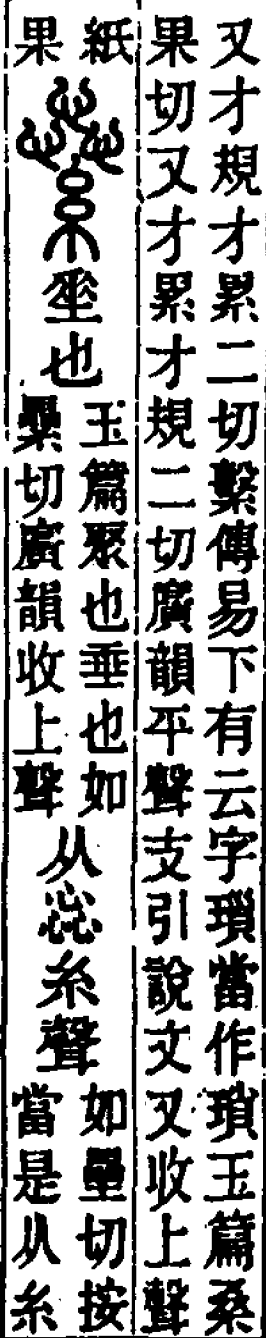 又才規才累二切繫傳易下有云字瑣當作瑣玉篇桑
果切又才累才規二切廣韻平聲支引說文又收上聲
紙
果
繠
垂也
玉篇聚也垂也如
櫐切廣韻收上聲
从惢糸聲
如壘切按
當是从糸